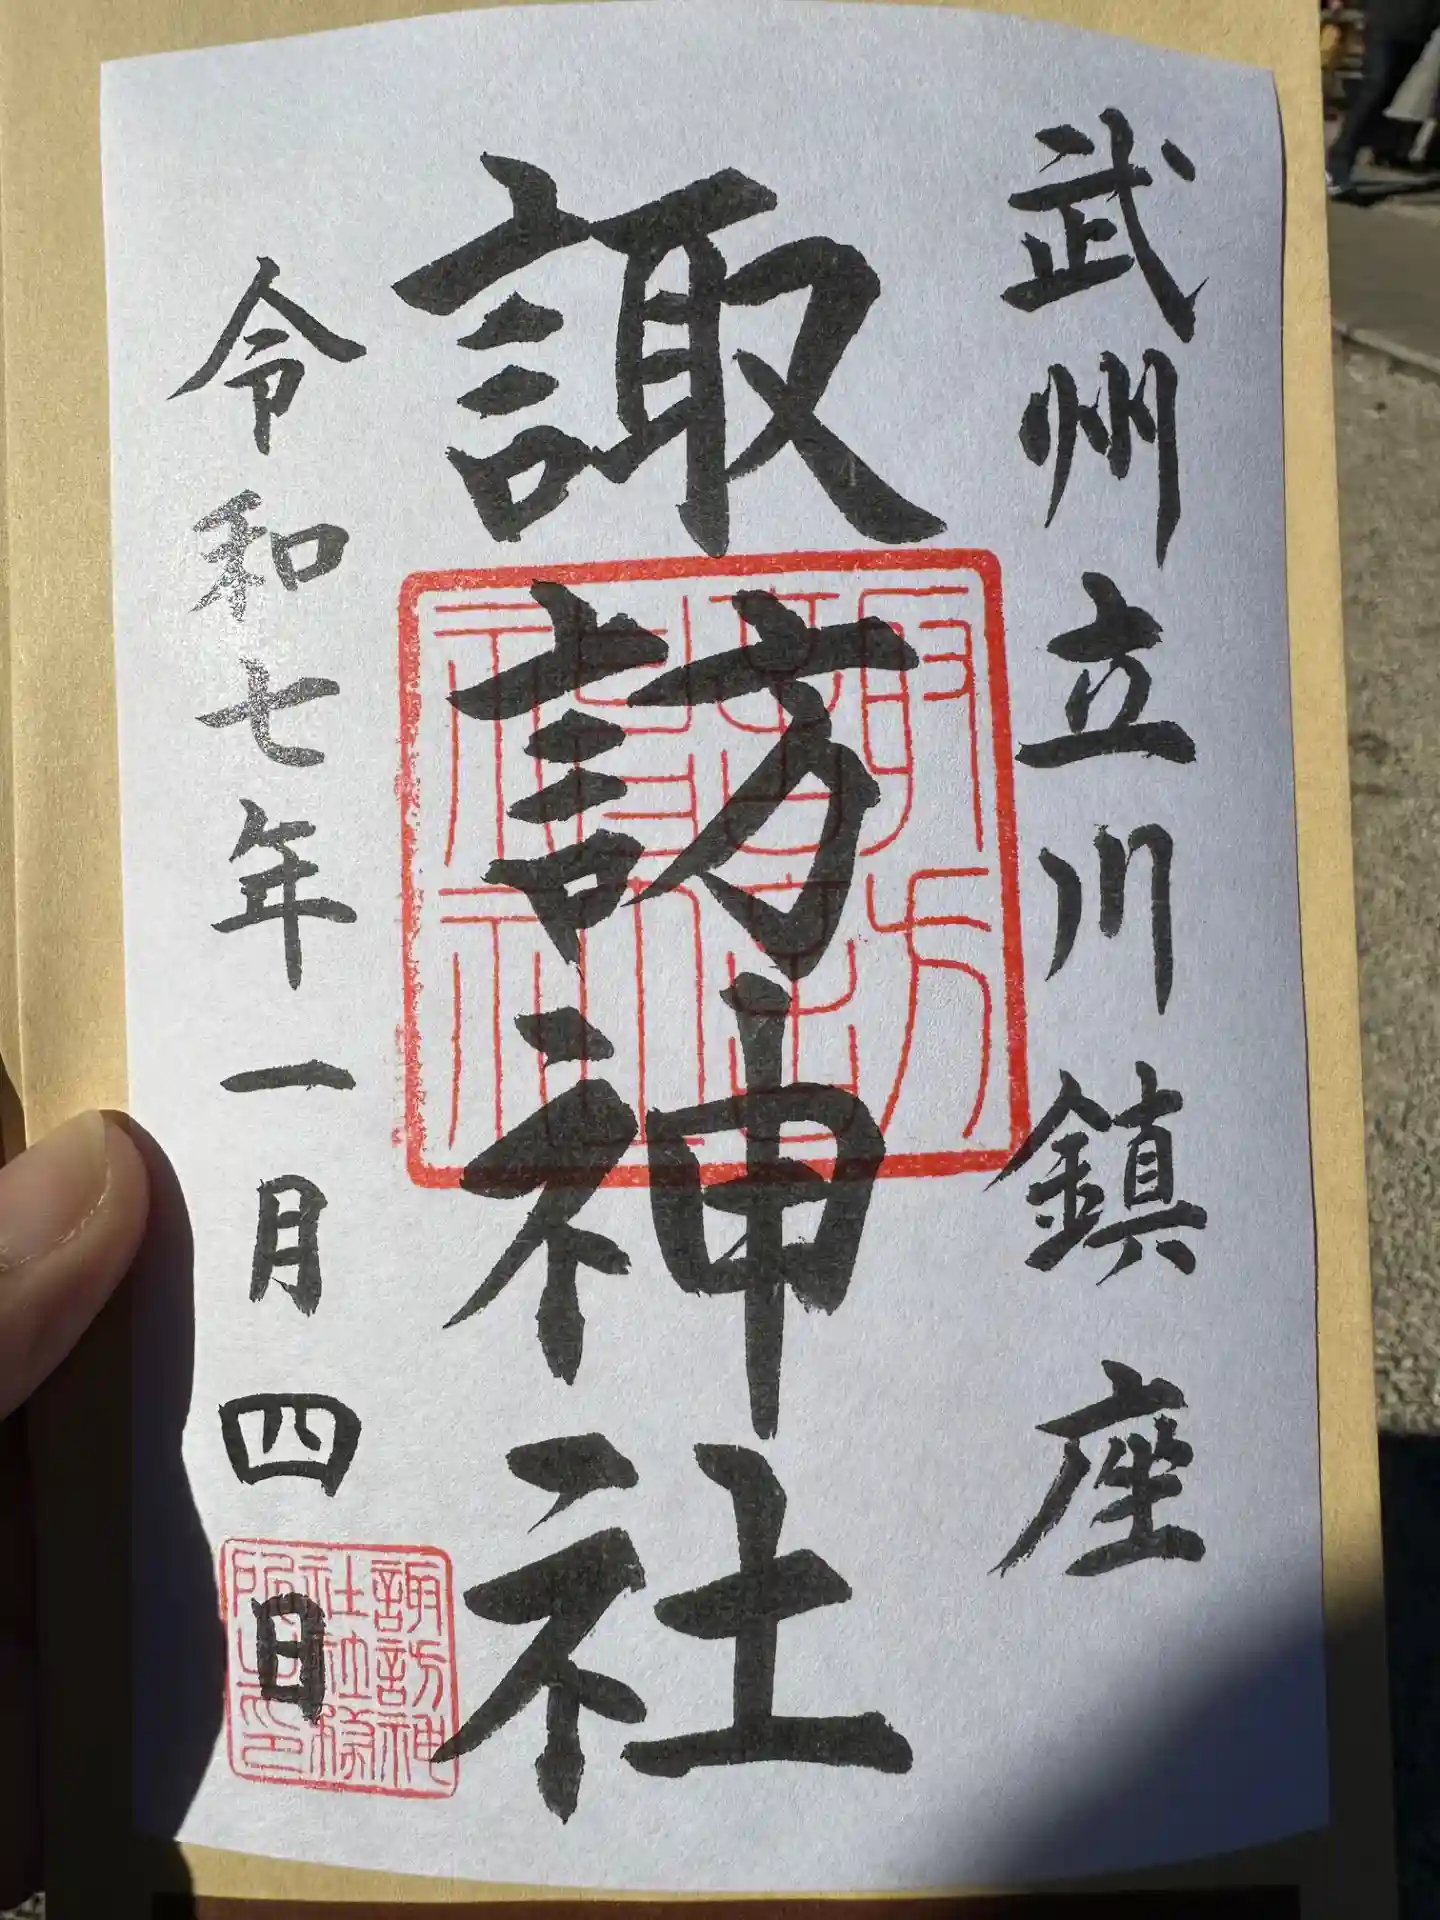 武州立川鎮座
諏訪神社
令和七年一月四日
諏訪神
社社務
所之印